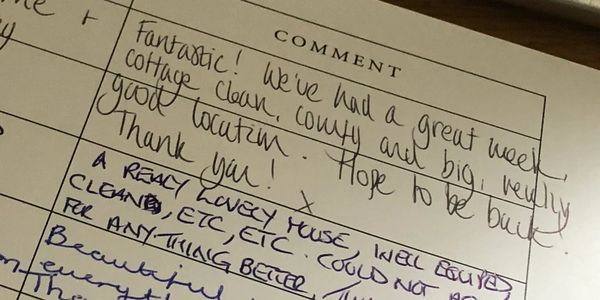 COMMENT
Fantastic! We've had a great week,
cottage clean, comfy and big, really
good location. Hope to be back.
Thank you! x
A REALLY LOVELY HOUSE, WELL EQUIPPED,
CLEAN, ETC, ETC. COULD NOT
FOR ANYTHING BETTER,
Beautiful
everyth